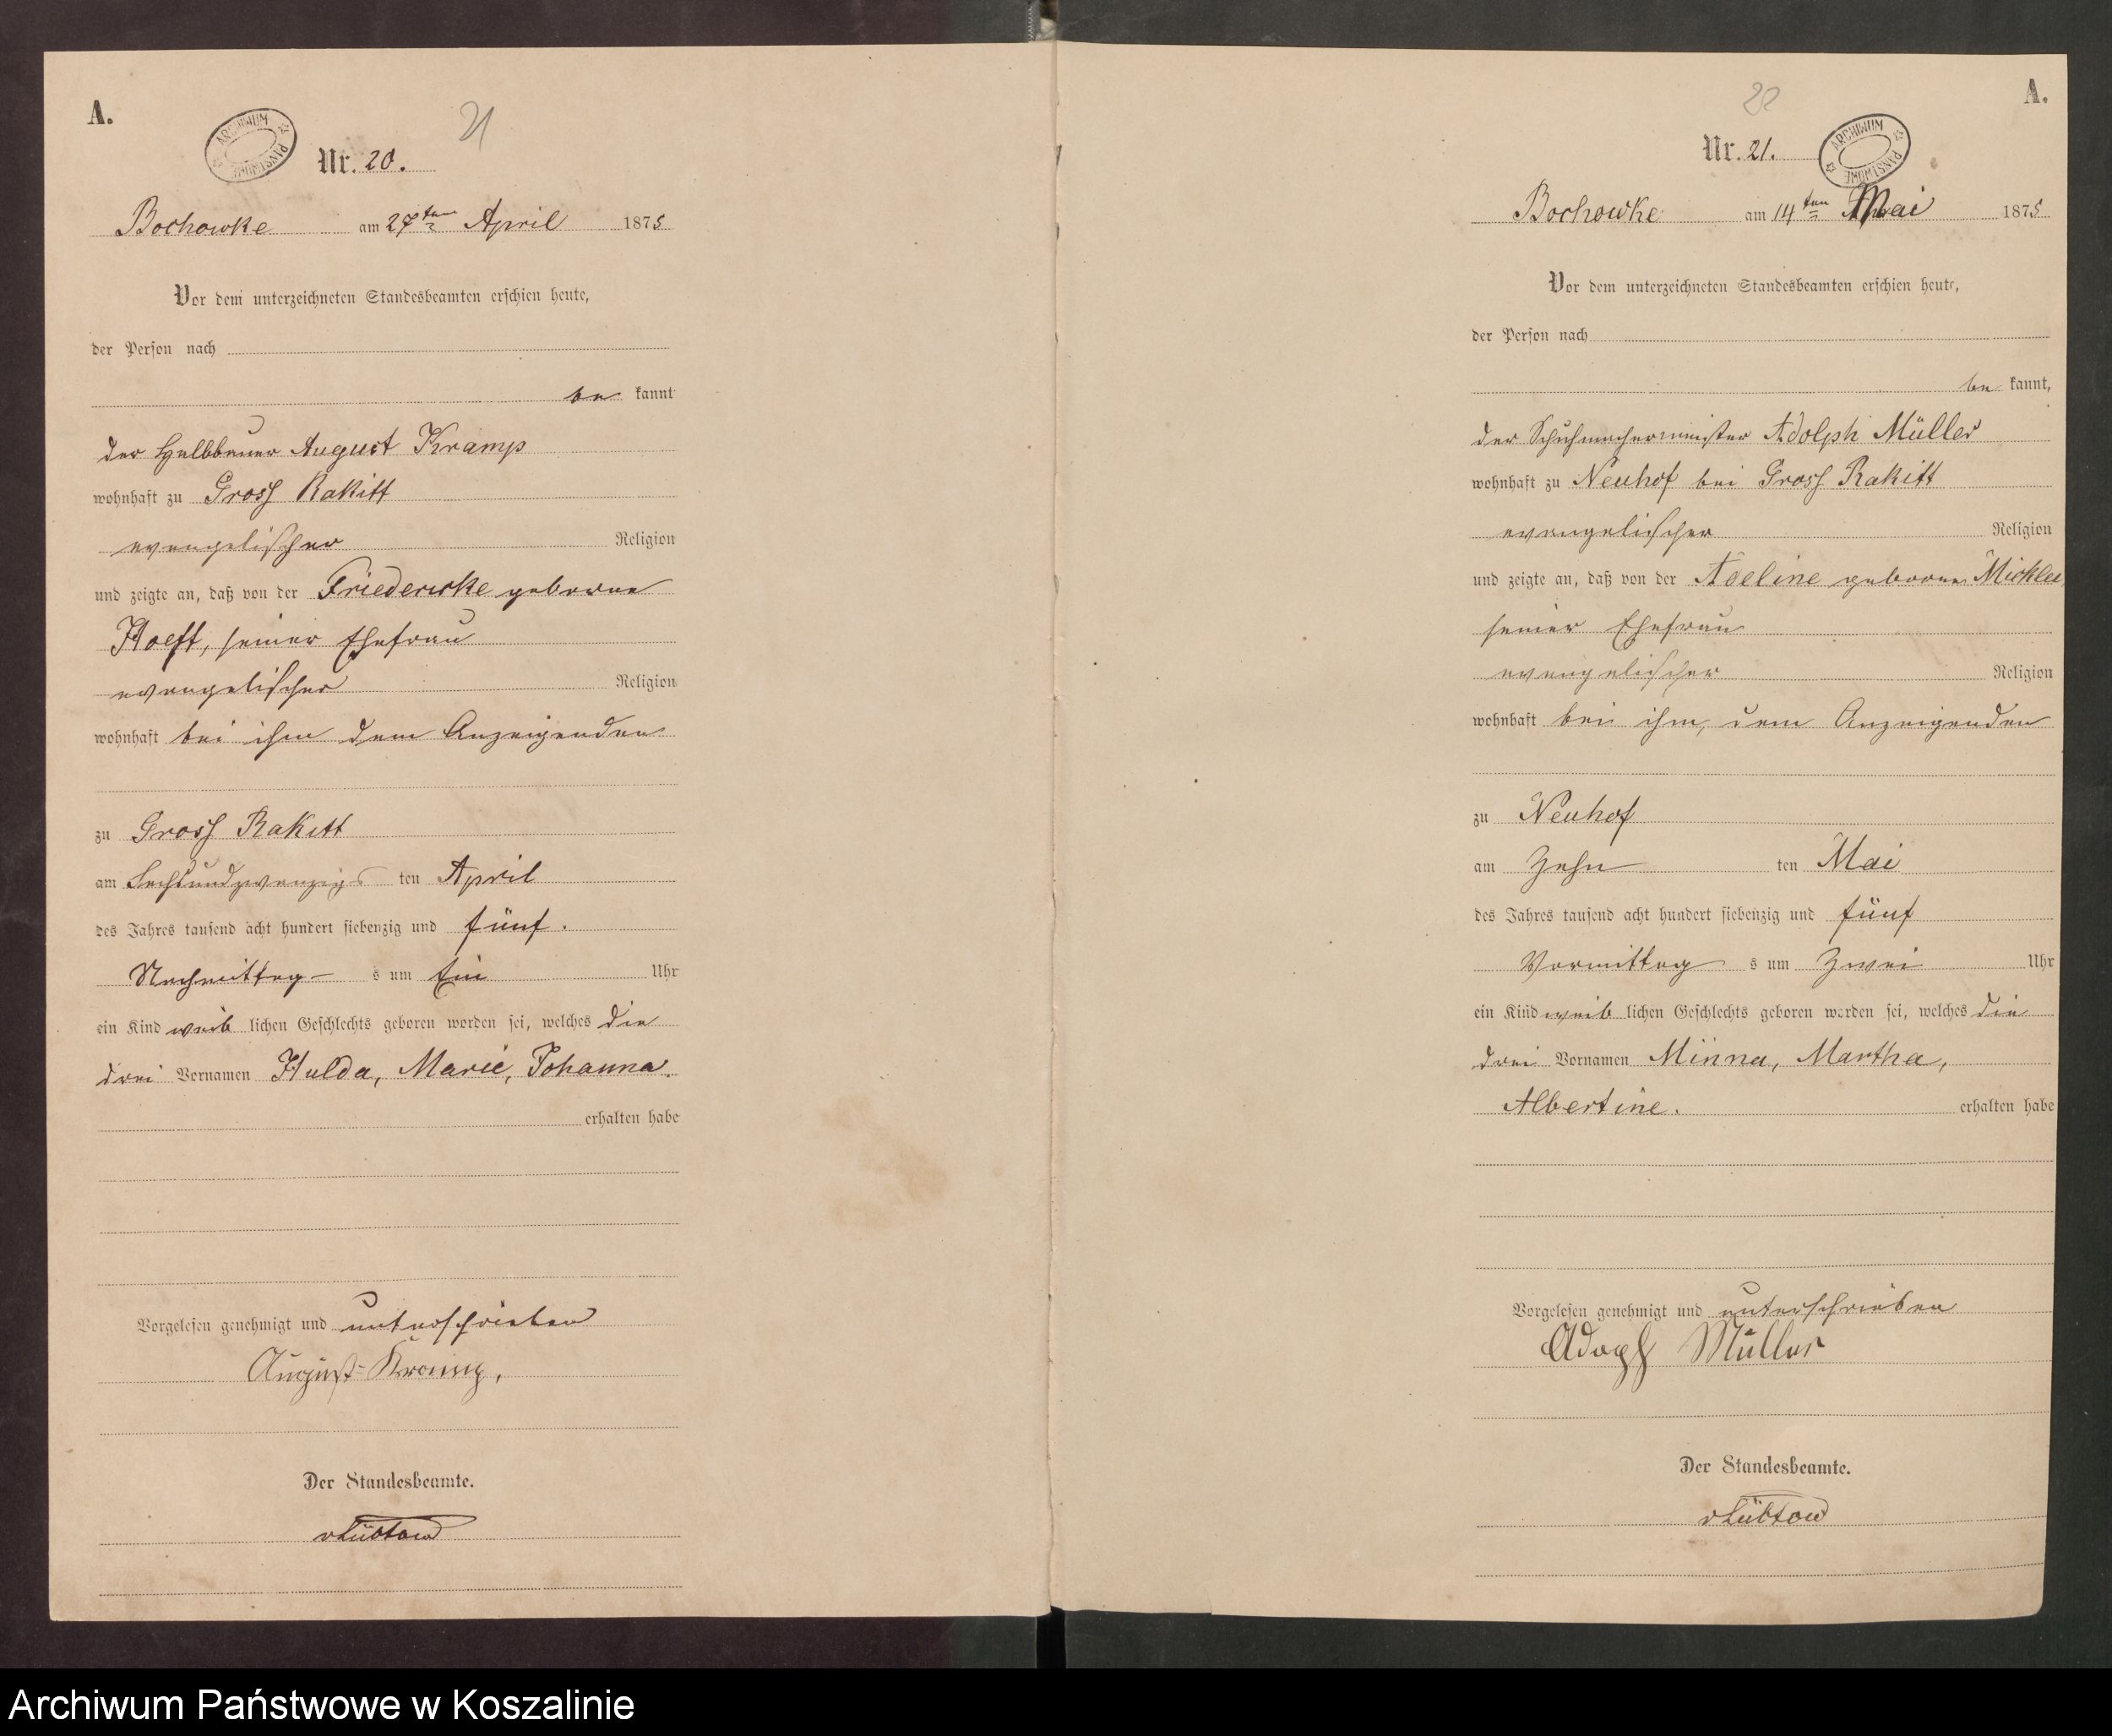 A.
ARCHIWUM PAŃSTWOWE
21
Nr. 20.
Bochowke am 27ten April 1875
Vor dem unterzeichneten Standesbeamten erschien heute,
der Person nach
be kannt
der Halbbauer August Kramp
wohnhaft zu Gross Rakitt
evangelischer Religion
und zeigte an, daß von der Friedericke geborne
Hoeft, seiner Ehefrau
evangelischer Religion
wohnhaft bei ihm dem Anzeigenden
zu Gross Rakitt
am Sechsundzwanzigs ten April
des Jahres tausend acht hundert siebenzig und fünf.
Nachmittag s um Ein Uhr
ein Kind weib lichen Geschlechts geboren worden sei, welches die
drei Vornamen Hulda, Marie, Johanna
erhalten habe
Vorgelesen genehmigt und unterschrieben
August Kramp,
Der Standesbeamte.
vLübtow
A.
22
Nr. 21.
ARCHIWUM PAŃSTWOWE
Bochowke am 14ten Mai 1875
Vor dem unterzeichneten Standesbeamten erschien heute,
der Person nach
be kannt,
der Schuhmachermeister Adolph Müller
wohnhaft zu Neuhof bei Gross Rakitt
evangelischer Religion
und zeigte an, daß von der Adeline geborne Micklei
seiner Ehefrau
evangelischer Religion
wohnhaft bei ihm, dem Anzeigenden
zu Neuhof
am Zehn ten Mai
des Jahres tausend acht hundert siebenzig und fünf
Vormittag s um Zwei Uhr
ein Kind weib lichen Geschlechts geboren worden sei, welches die
drei Vornamen Minna, Martha,
Albertine. erhalten habe
Vorgelesen genehmigt und unterschrieben
Adolph Müller
Der Standesbeamte.
vLübtow
Archiwum Państwowe w Koszalinie